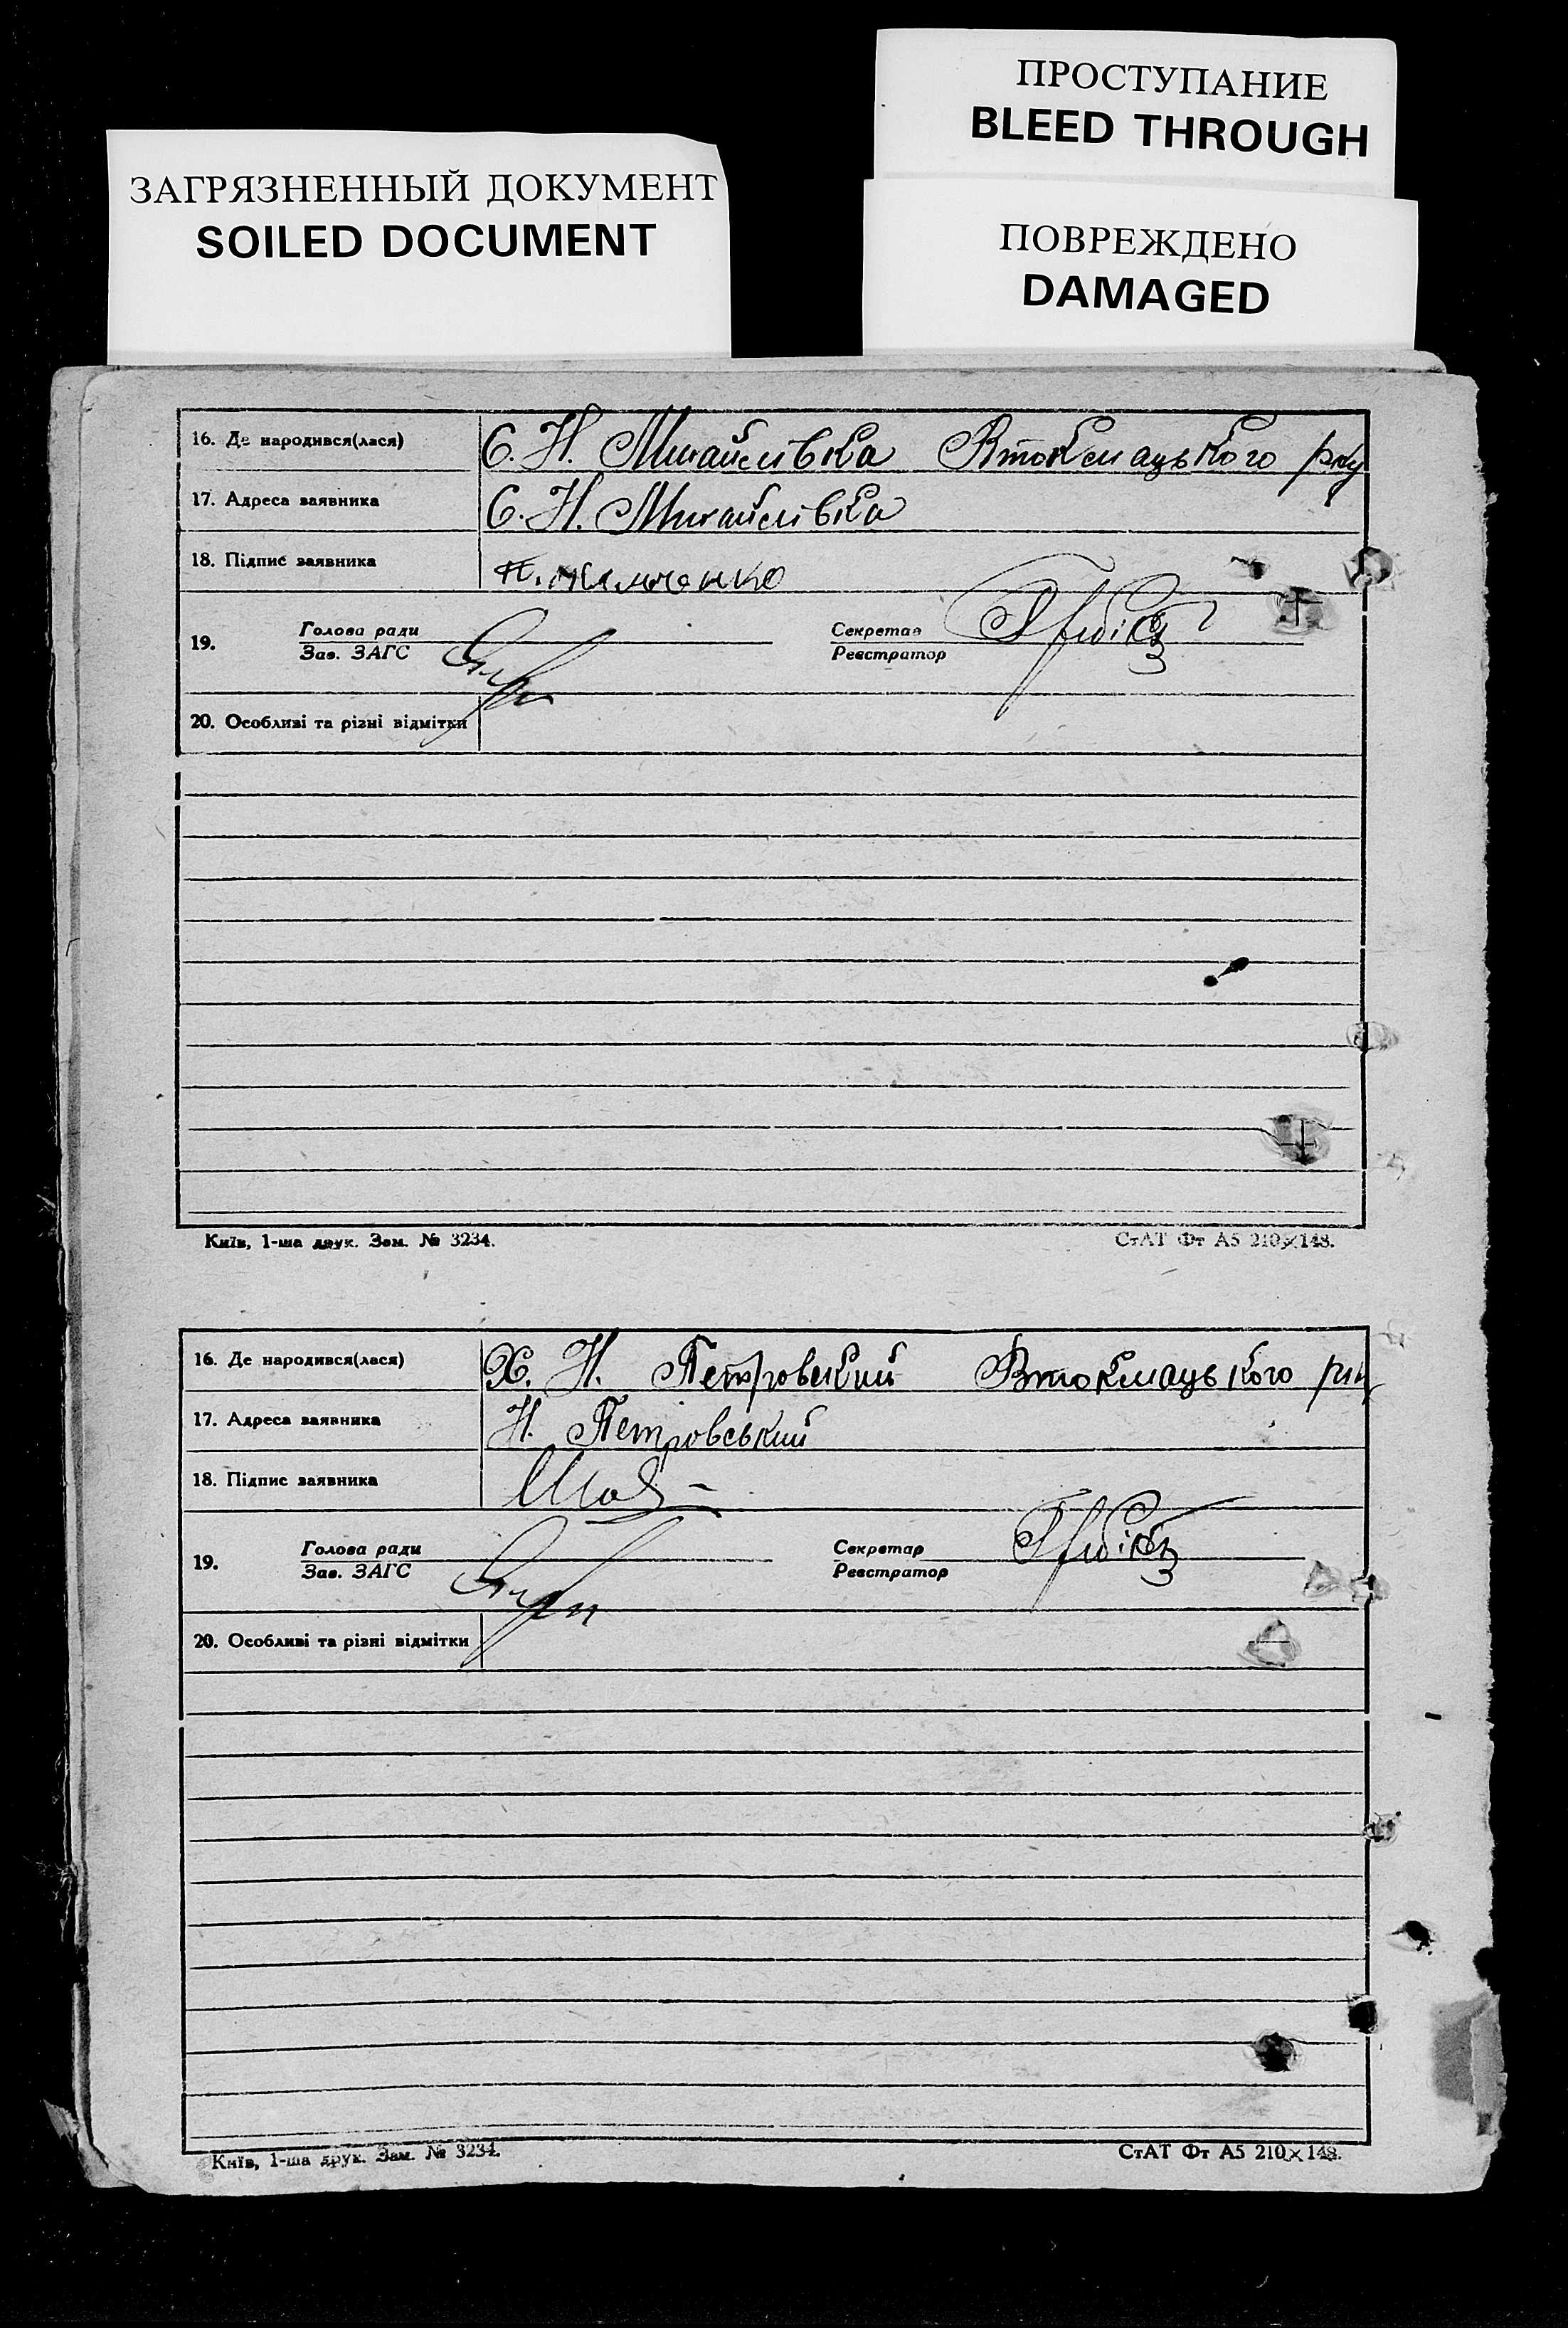 ПРОСТУПАНИЕ
BLEED THROUGH
ЗАГРЯЗНЕННЫЙ ДОКУМЕНТ
SOILED DOCUMENT
ПОВРЕЖДЕНО
DAMAGED
16. Де народився(лася) С. Н. Михайлівка Втокмацького р-ну
17. Адреса заявника С. Н. Михайлівка
18. Підпис заявника
19. Голова ради Секретар
Зав. ЗАГС Реєстратор
20. Особливі та різні відмітки
Київ, 1-ша друк. Зам. № 3234. СтАТ Фт А5 210×148.
16. Де народився(лася) Х. Н. Петровский Втокмацького р-н
17. Адреса заявника Н. Петровський
18. Підпис заявника
19. Голова ради Секретар
Зав. ЗАГС Реєстратор
20. Особливі та різні відмітки
Київ, 1-ша друк. Зам. № 3234. СтАТ Фт А5 210×148.